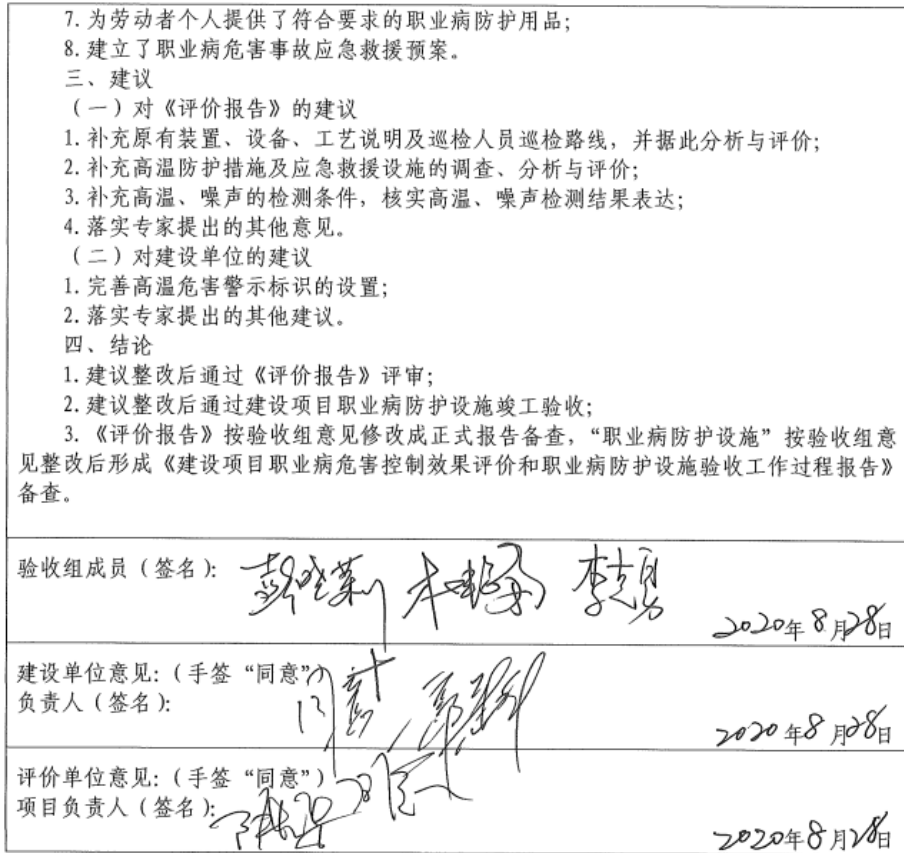 7.为劳动者个人提供了符合要求的职业病防护用品；
8.建立了职业病危害事故应急救援预案。
三、建议
（一）对《评价报告》的建议
1.补充原有装置、设备、工艺说明及巡检人员巡检路线，并据此分析与评价；
2.补充高温防护措施及应急救援设施的调查、分析与评价；
3.补充高温、噪声的检测条件，核实高温、噪声检测结果表达；
4.落实专家提出的其他意见。
（二）对建设单位的建议
1.完善高温危害警示标识的设置；
2.落实专家提出的其他建议。
四、结论
1.建议整改后通过《评价报告》评审；
2.建议整改后通过建设项目职业病防护设施竣工验收；
3.《评价报告》按验收组意见修改成正式报告备查，“职业病防护设施”按验收组意
见整改后形成《建设项目职业病危害控制效果评价和职业病防护设施验收工作过程报告》
备查。
验收组成员（签名）： 李克勇
2020年8月28日
建设单位意见：（手签“同意”） 同意
负责人（签名）：
2020年8月28日
评价单位意见：（手签“同意”） 同意
项目负责人（签名）：
2020年8月28日